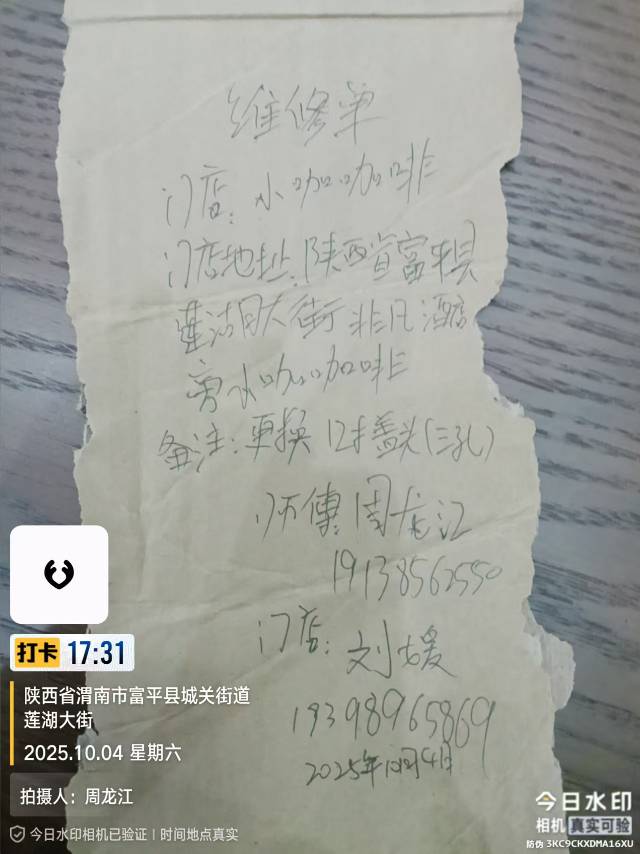 维修单
门店:小咖咖啡
门店地址:陕西省富平县
莲湖大街非凡酒店
旁小咖咖啡
备注:更换12寸盖头(三孔)
师傅:周龙江
19138562550
门店:刘媛
19398965869
2025年10月4日
打卡 17:31
陕西省渭南市富平县城关街道
莲湖大街
2025.10.04 星期六
拍摄人:周龙江
今日水印相机已验证 | 时间地点真实
今日水印
相机 真实可验
防伪 3KC9CKXDMA16XU